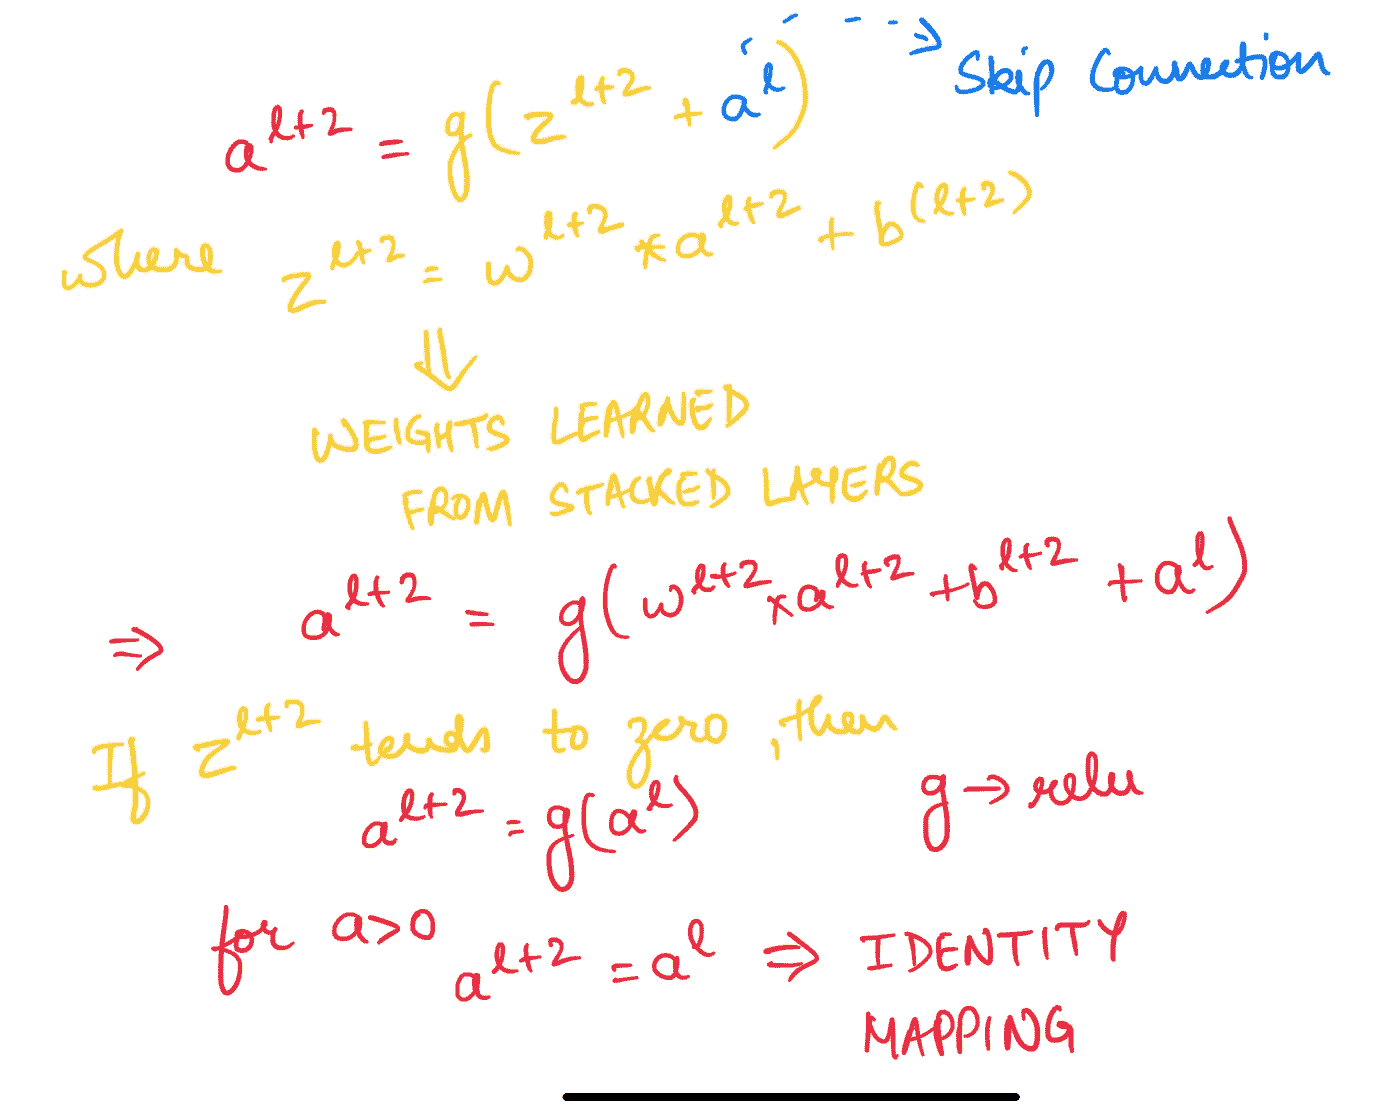 a^{l+2} = g(z^{l+2} + a^l) --> Skip Connection
where z^{l+2} = w^{l+2} * a^{l+2} + b^{(l+2)}
⇓
WEIGHTS LEARNED
FROM STACKED LAYERS
⇒ a^{l+2} = g(w^{l+2} * a^{l+2} + b^{l+2} + a^l)
If z^{l+2} tends to zero, then
a^{l+2} = g(a^l) g → relu
for a>0 a^{l+2} = a^l ⇒ IDENTITY
MAPPING